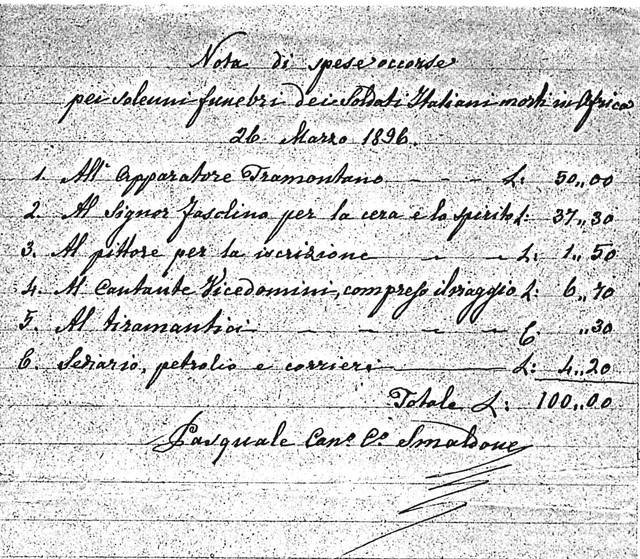 Nota di spese occorse
pei solenni funebri dei Soldati Italiani morti in Africa
26 Marzo 1896.
1. All' Apparatore Tramontano — — — L: 50,,00
2. Al Signor Jasolino per la cera e lo spirito L: 37,,30
3. Al pittore per la iscrizione — — L: 1,,50
4. Al Cantante Vicedomini, compreso il viaggio L: 6,,70
5. Al tiramantici — — — — £ ,,30
6. Sediario, petrolio e corrieri — L: 4,,20
Totale L: 100,,00
Pasquale Can.º C.º Smaldone